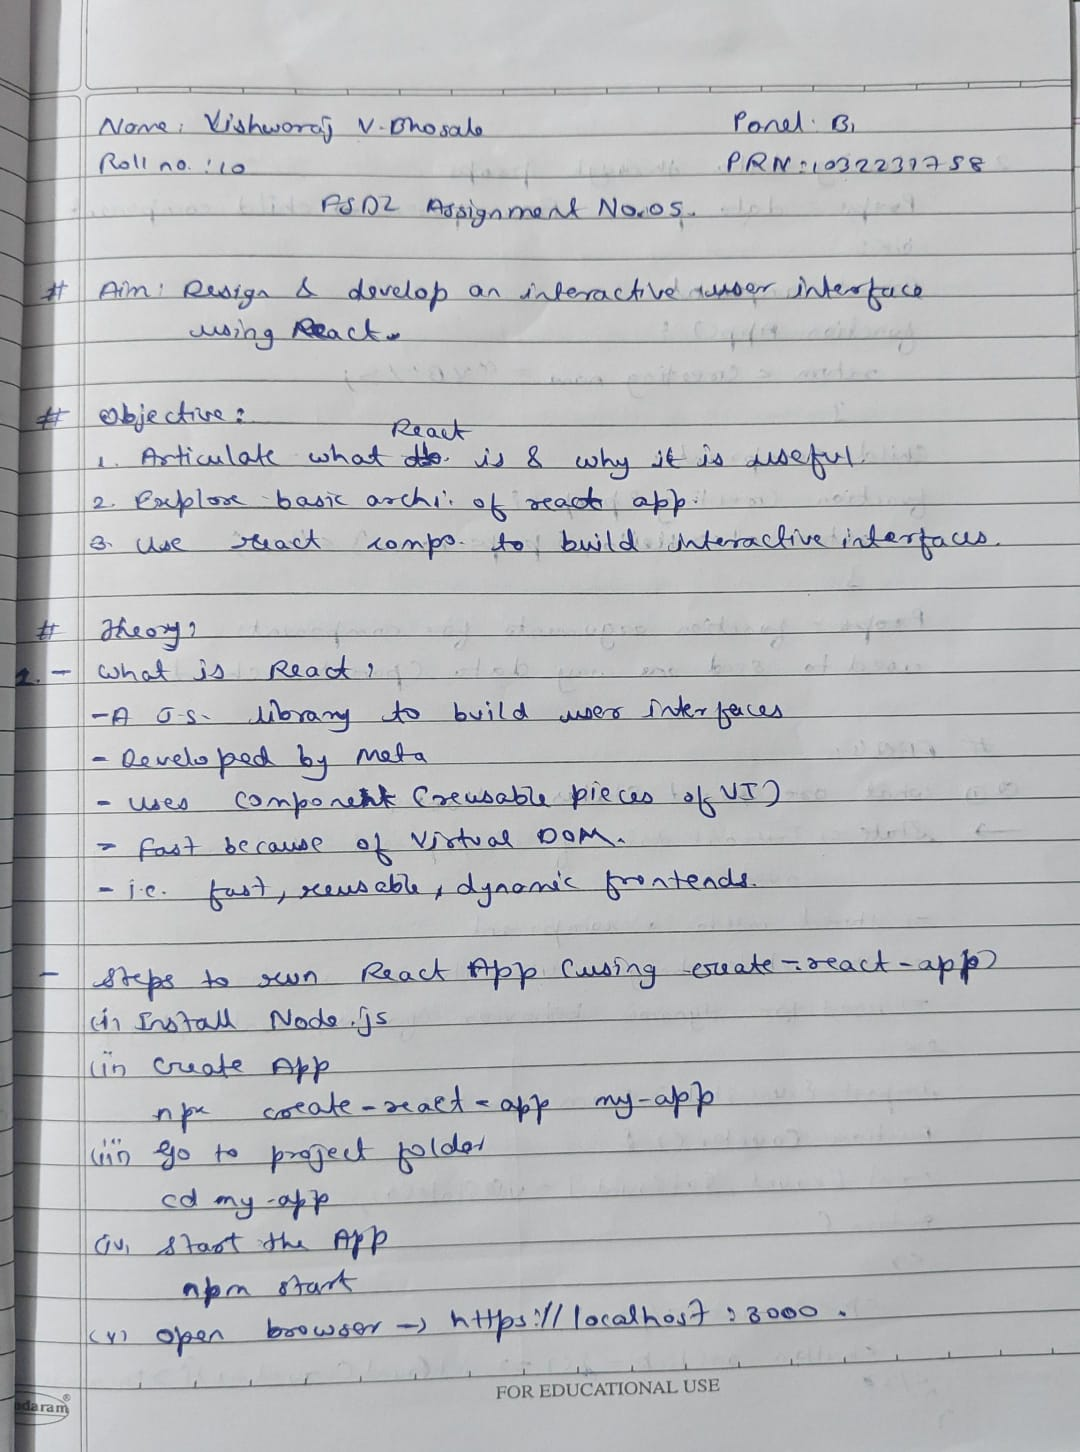 Name: Vishworaj V. Bhosale Panel: B1
Roll no.: 10 PRN: 1032231758
FSD2 Assignment No.05.
# Aim: Design & develop an interactive user interface
using React.
# Objective:
React
1. Articulate what is & why it is useful.
2. Explore basic archi. of react app.
3. Use react compo. to build interactive interfaces.
# Theory:
1. - What is React?
- A J.S. library to build user interfaces
- Developed by Meta
- uses component (reusable pieces of UI)
- Fast because of Virtual DOM.
- i.e. fast, reusable, dynamic frontends.
- Steps to run React App (using create-react-app)
(i) Install Node.js
(ii) Create App
npx create-react-app my-app
(iii) Go to project folder
cd my-app
(iv) Start the App
npm start
(v) open browser → https://localhost:3000.
FOR EDUCATIONAL USE